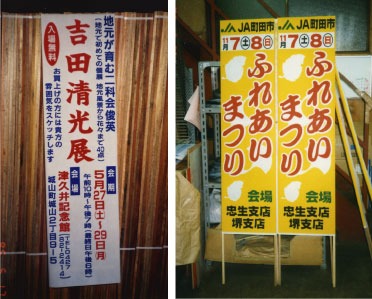 地元が育む二科会俊英
(地元で初めての個展 地元風景から花々まで40点)
吉田清光展
入場無料
お買上げの方には貴方の
雰囲気をスケッチします
会期
5月27日土〜29日月
午前10時〜午後7時(最終日午後6時)
会場
津久井記念館
城山町城山2丁目9-5
JA町田市
11月7土8日
ふれあい
まつり
会場
忠生支店
堺支店
JA町田市
11月7土8日
ふれあい
まつり
会場
忠生支店
堺支店